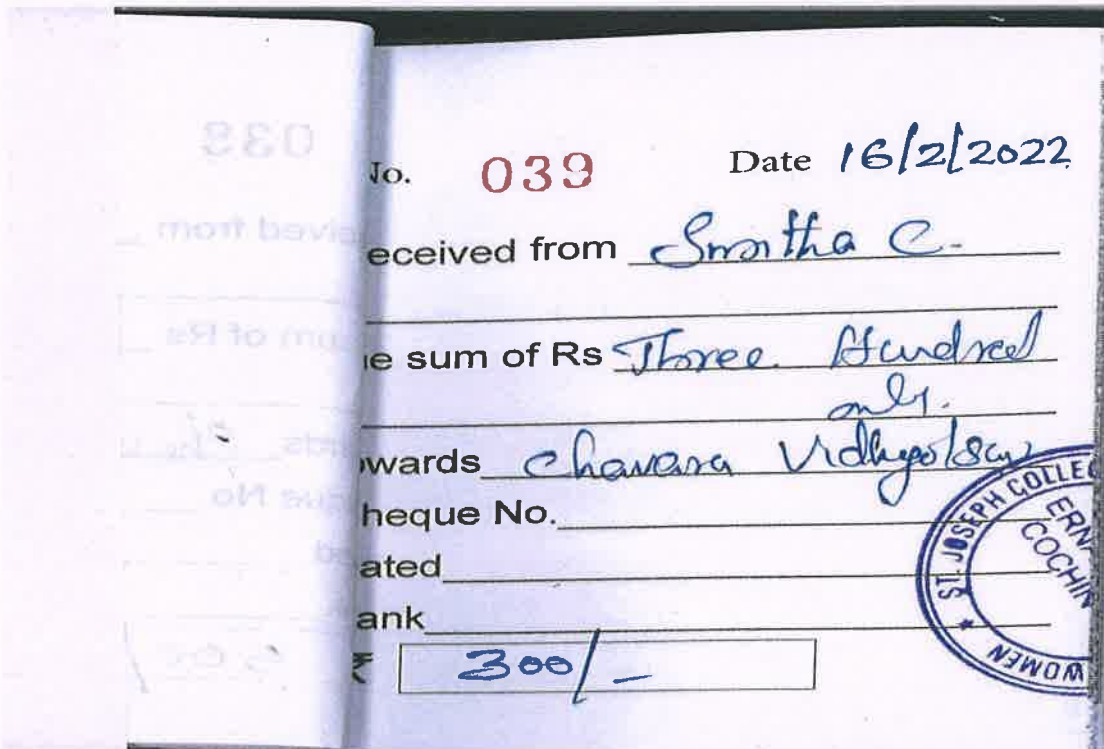 No. 039 Date 16/2/2022
eceived from Smitha C.
e sum of Rs Three Hundred
only.
wards Chavara Vidhyotsav
heque No.
ated
ank
₹ 300/-
ST. JOSEPH COLLEG
WOMEN
ERNA
COCHIN